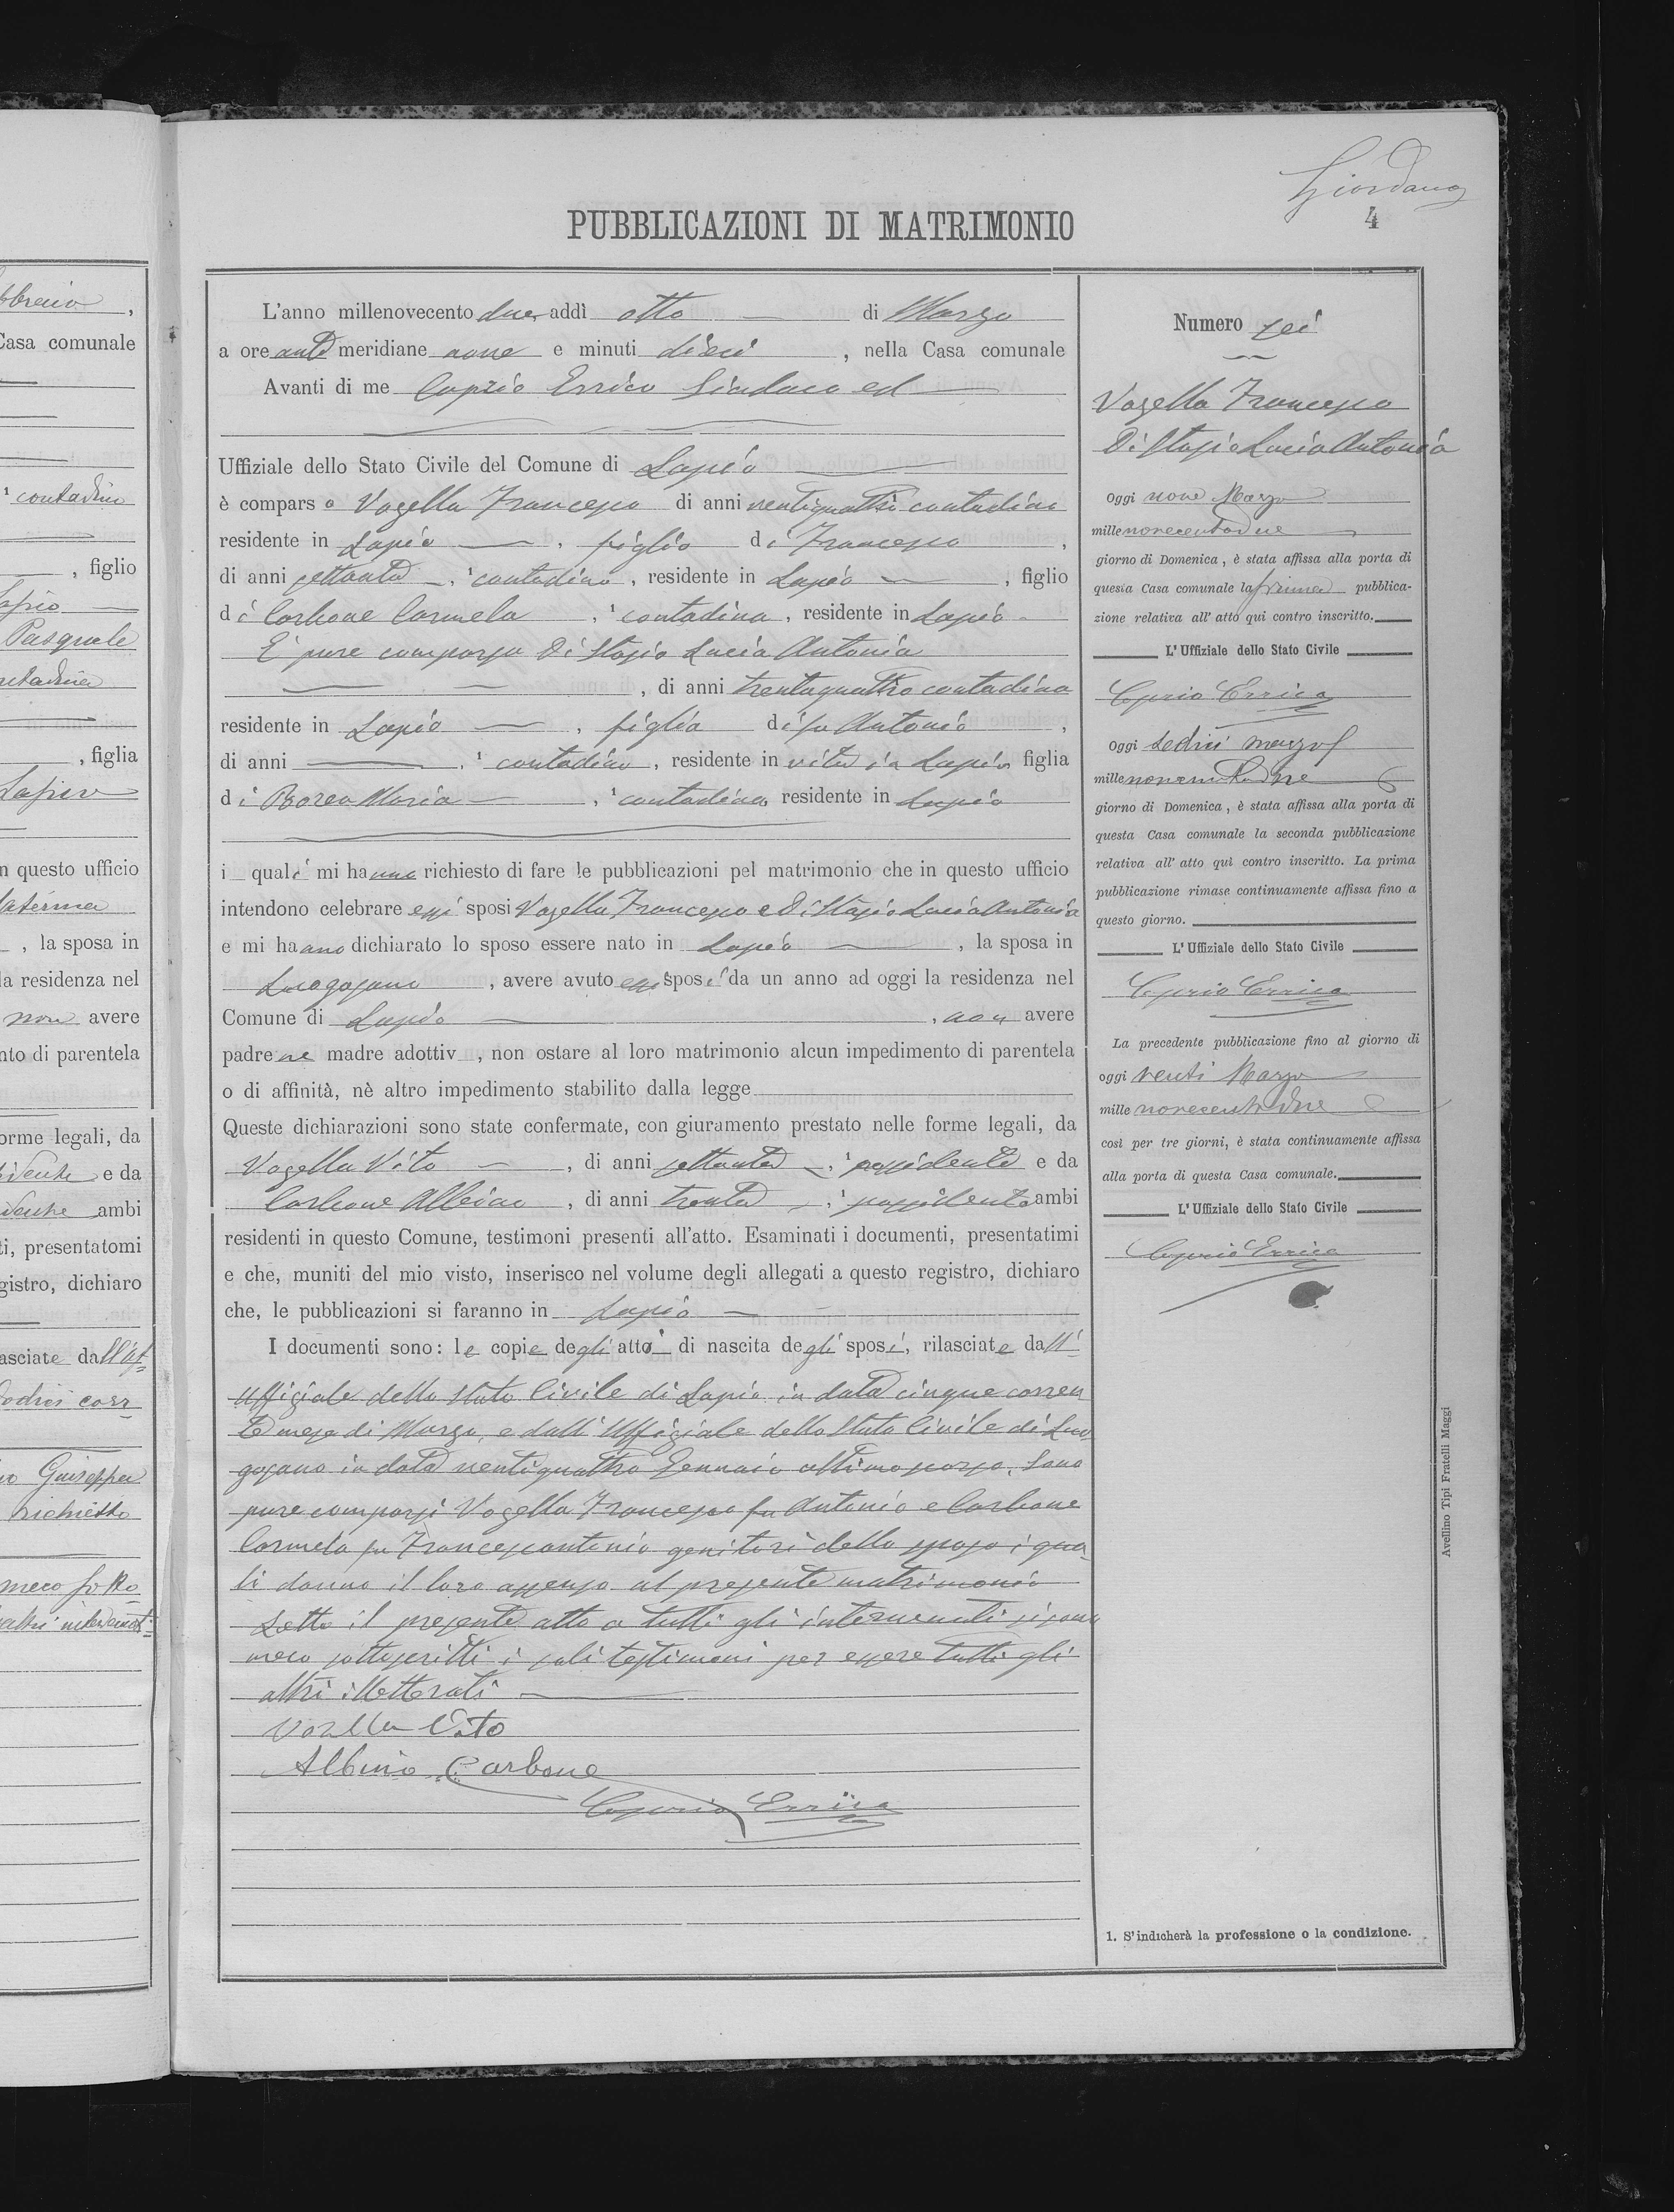 bbraio,
Casa comunale
contadino
, figlio
Lapio
Pasquale
contadina
, figlia
Lapio
n questo ufficio
, la sposa in
la residenza nel
non avere
nto di parentela
orme legali, da
e da
ambi
ti, presentatomi
gistro, dichiaro
asciate dall'uf-
corr
Giuseppa
richiesto
meco sotto
altri intervenuti
Giordano
4
PUBBLICAZIONI DI MATRIMONIO
L'anno millenovecento due addì otto di Marzo
a ore ante meridiane nove e minuti dieci, nella Casa comunale
Avanti di me Caprio Errico Sindaco ed
Uffiziale dello Stato Civile del Comune di Lapio
è comparso Vozella Francesco di anni ventiquattro contadino
residente in Lapio, figlio di Francesco,
di anni settanta, ¹ contadino, residente in Lapio, figlio
di Carbone Carmela, ¹ contadina, residente in Lapio
È pure comparsa Di Stasio Lucia Antonia
, di anni trentaquattro contadina
residente in Lapio, figlia di fu Antonio,
di anni , ¹ contadino, residente in vita in Lapio figlia
di Borea Maria, ¹ contadina residente in Lapio
i quali mi hanno richiesto di fare le pubblicazioni pel matrimonio che in questo ufficio
intendono celebrare essi sposi Vozella Francesco e Di Stasio Lucia Antonia
e mi hanno dichiarato lo sposo essere nato in Lapio, la sposa in
Luogosano, avere avuto essi sposi da un anno ad oggi la residenza nel
Comune di Lapio, non avere
padre ne madre adottiv , non ostare al loro matrimonio alcun impedimento di parentela
o di affinità, nè altro impedimento stabilito dalla legge
Queste dichiarazioni sono state confermate, con giuramento prestato nelle forme legali, da
Vozella Vito, di anni settanta, ¹ possidente e da
Carbone Albino, di anni trenta, ¹ possidente ambi
residenti in questo Comune, testimoni presenti all'atto. Esaminati i documenti, presentatimi
e che, muniti del mio visto, inserisco nel volume degli allegati a questo registro, dichiaro
che, le pubblicazioni si faranno in Lapio
I documenti sono: le copie degli atti di nascita degli sposi, rilasciate dall'
Uffiziale dello Stato Civile di Lapio in data cinque corren
te mese di Marzo, e dall'Uffiziale dello Stato Civile di Luo
gosano in data ventiquattro Gennaio ultimo scorso. Sono
pure comparsi Vozella Francesco fu Antonio e Carbone
Carmela fu Francescantonio genitori dello sposo i qua
li danno il loro assenso al presente matrimonio
Letto il presente atto a tutti gli intervenuti si sono
meco sottoscritti i soli testimoni per essere tutti gli
altri illetterati
Vozella Vito
Albino Carbone
Caprio Errico
Numero sei
Vozella Francesco
Di Stasio Lucia Antonia
Oggi nove Marzo
mille novecentodue
giorno di Domenica, è stata affissa alla porta di
questa Casa comunale la prima pubblica-
zione relativa all' atto qui contro inscritto.
L'Uffiziale dello Stato Civile
Caprio Errico
Oggi sedici marzo
mille novecentodue
giorno di Domenica, è stata affissa alla porta di
questa Casa comunale la seconda pubblicazione
relativa all' atto quì contro inscritto. La prima
pubblicazione rimase continuamente affissa fino a
questo giorno.
L'Uffiziale dello Stato Civile
Caprio Errico
La precedente pubblicazione fino al giorno di
oggi venti Marzo
mille novecentodue
così per tre giorni, è stata continuamente affissa
alla porta di questa Casa comunale.
L'Uffiziale dello Stato Civile
Caprio Errico
1. S'indicherà la professione o la condizione.
Avellino Tipi Fratelli Maggi